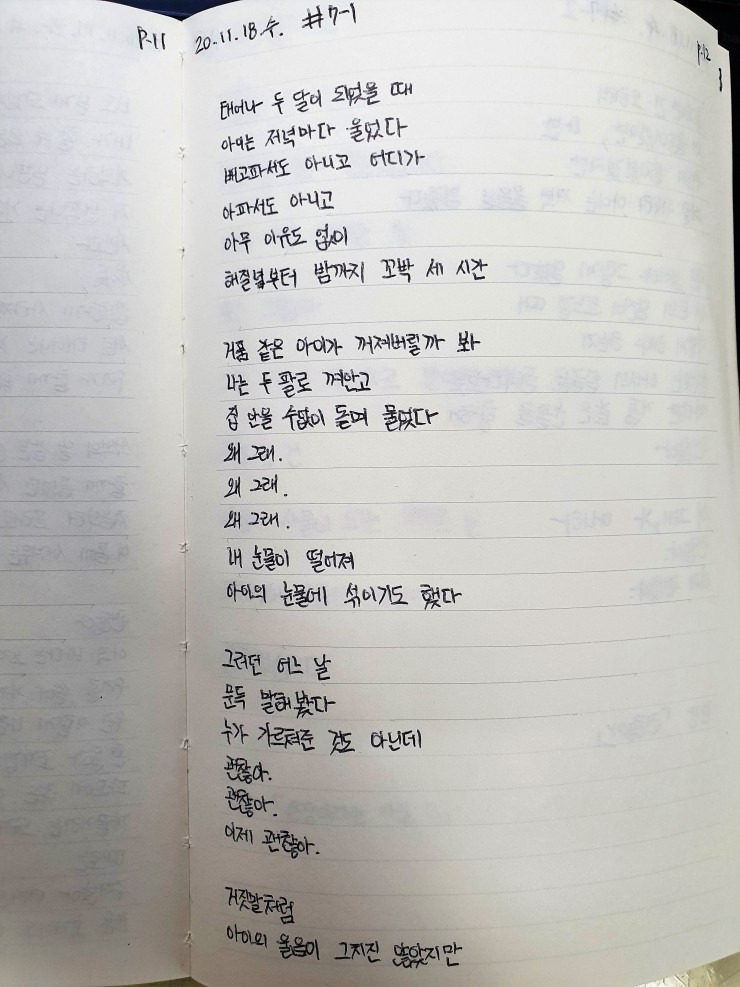 P.11
20.11.18.수. #7-1
P.12
태어나 두 달이 되었을 때
아이는 저녁마다 울었다
배고파서도 아니고 어디가
아파서도 아니고
아무 이유도 없이
해질녘부터 밤까지 꼬박 세 시간
거품 같은 아이가 꺼져버릴까 봐
나는 두 팔로 껴안고
집 안을 수없이 돌며 물었다
왜 그래.
왜 그래.
왜 그래.
내 눈물이 떨어져
아이의 눈물에 섞이기도 했다
그러던 어느 날
문득 말해봤다
누가 가르쳐준 것도 아닌데
괜찮아.
괜찮아.
이제 괜찮아.
거짓말처럼
아이의 울음이 그치진 않았지만